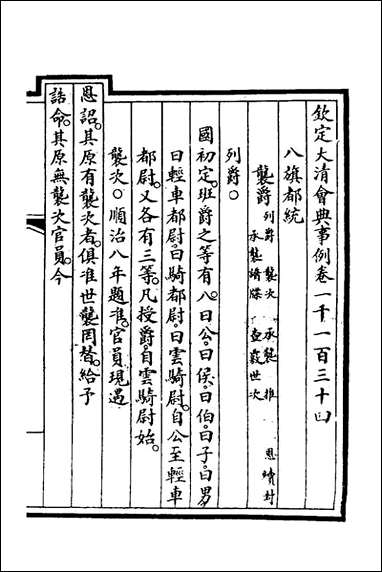 欽定大清會典事例卷一千一百三十四
八旗都統
襲爵列爵 襲次 承襲 推 恩續封
承襲譜牒 查覈世次
列爵○
國初定班爵之等有八曰公曰侯曰伯曰子曰男
曰輕車都尉曰騎都尉曰雲騎尉自公至輕車
都尉又各有三等凡授爵自雲騎尉始
襲次○順治八年題准官員現遇
恩詔其原有襲次者俱准世襲罔替給予
誥命其原無襲次官員今